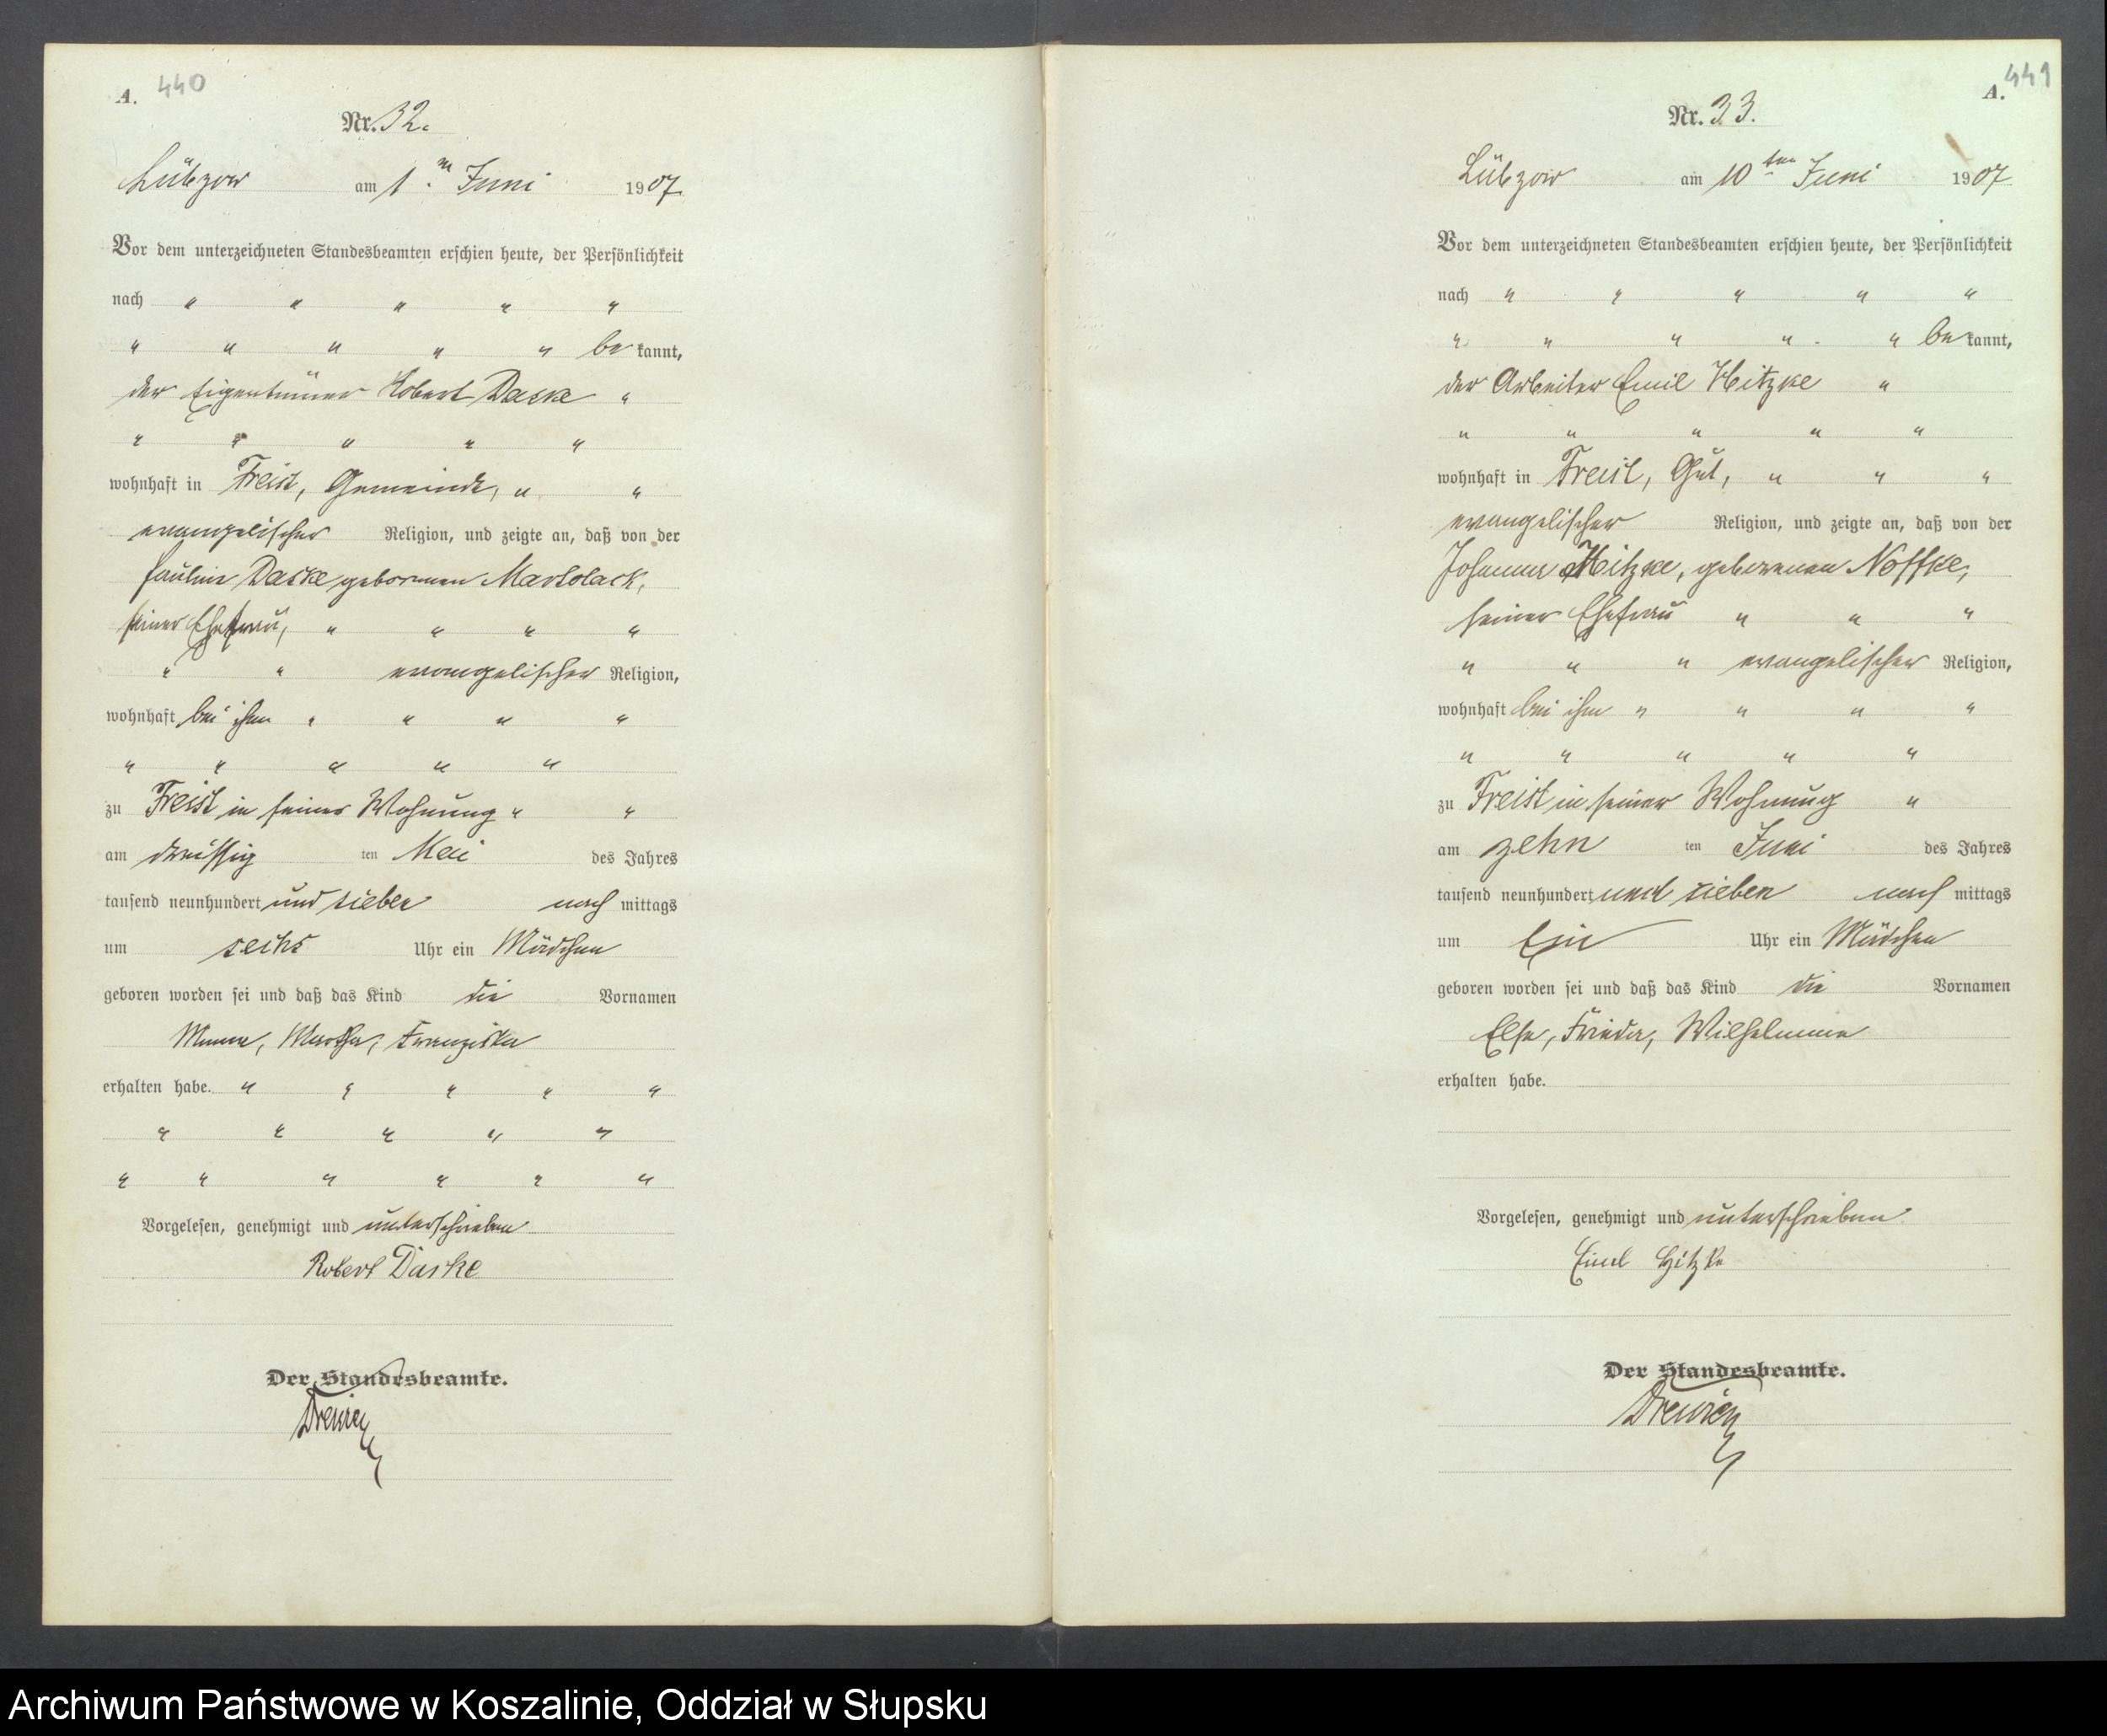 A. 440
Nr. 32.
Lübzow am 1.ten Juni 1907
Vor dem unterzeichneten Standesbeamten erschien heute, der Persönlichkeit
nach " " " " "
" " " " " be kannt,
der Eigentümer Robert Daske "
" " " " "
wohnhaft in Freist, Gemeinde, " "
evangelischer Religion, und zeigte an, daß von der
Pauline Daske geborenen
seiner Ehefrau, " " " "
" " evangelischer Religion,
wohnhaft bei ihm " " " "
" " " " "
zu Freist in seiner Wohnung " "
am dreißig ten Mai des Jahres
tausend neunhundert und sieben nach mittags
um sechs Uhr ein Mädchen
geboren worden sei und daß das Kind die Vornamen
Martha, Franziska
erhalten habe. " " " " "
" " " " "
" " " " " "
Vorgelesen, genehmigt und unterschrieben
Robert Daske
Der Standesbeamte.
Drewien
A. 441
Nr. 33.
Lübzow am 10ten Juni 1907
Vor dem unterzeichneten Standesbeamten erschien heute, der Persönlichkeit
nach " " " " "
" " " " " be kannt,
der Arbeiter Emil Hitzke "
" " " " "
wohnhaft in Freist, Gut, " " "
evangelischer Religion, und zeigte an, daß von der
Johanne Hitzke, geborenen Noffke,
seiner Ehefrau " " "
" " " evangelischer Religion,
wohnhaft bei ihm " " " "
" " " " "
zu Freist in seiner Wohnung "
am zehn ten Juni des Jahres
tausend neunhundert und sieben nach mittags
um Ein Uhr ein Mädchen
geboren worden sei und daß das Kind die Vornamen
Else, Frieda, Wilhelmine
erhalten habe.
Vorgelesen, genehmigt und unterschrieben
Emil Hitzke
Der Standesbeamte.
Drewien
Archiwum Państwowe w Koszalinie, Oddział w Słupsku